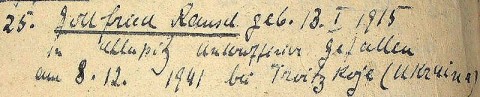 25. Gottfried Rausch geb. 13. I 1915
in Unteroffizier gefallen
am 8. 12. 1941 bei Troitzkoje (Ukraina)